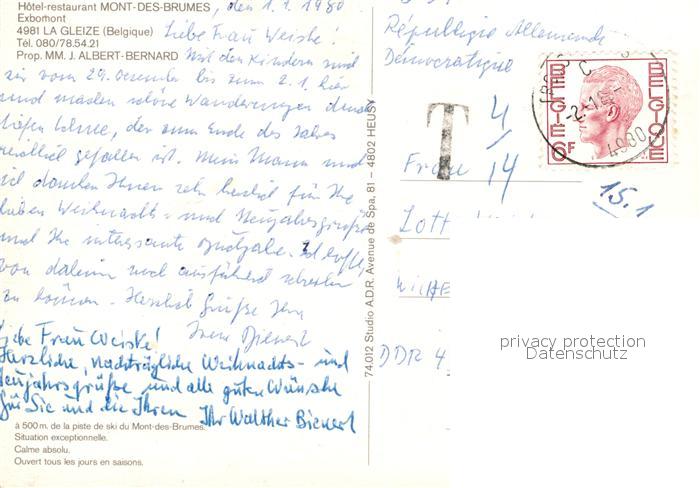 Hôtel-restaurant MONT-DES-BRUMES
Exbomont
4981 LA GLEIZE (Belgique)
Tél. 080/78.54.21
Prop. MM. J. ALBERT-BERNARD
, den 1.1.1980
Liebe Frau Weiske!
Mit den Kindern sind
wir vom 29. Dezember bis zum 2.1. hier
und machen schöne Wanderungen durch
tiefen Schnee, der zum Ende des Jahres
reichlich gefallen ist. Mein Mann und
ich danken Ihnen sehr herzlich für Ihre
lieben Weihnachts- und Neujahrsgrüße
und Ihre interessante Ich hoffe,
von daheim noch ausführlich schreiben
zu können. Herzliche Grüße Ihre
Irene Bienert
Liebe Frau Weiske!
Herzliche, nachträgliche Weihnachts- und
Neujahrsgrüße und alle guten Wünsche
für Sie und die Ihren Ihr Walther Bienert
à 500 m. de la piste de ski du Mont-des-Brumes.
Situation exceptionnelle.
Calme absolu.
Ouvert tous les jours en saisons.
74.012 Studio A.D.R. Avenue de Spa, 81 – 4802 HEUSY
République Allemande
Démocratique
T
4/14
BELGIE BELGIQUE
6F
4980
15.1
Frau
Lott
DDR 4
privacy protection
Datenschutz